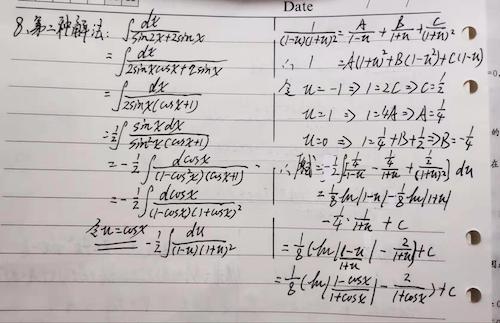 Date
8. 第二种解法: ∫ dx/(sin2x+2sinx)
= ∫ dx/(2sinxcosx+2sinx)
= ∫ dx/(2sinx(cosx+1))
= 1/2 ∫ sinxdx/(sin²x(cosx+1))
= -1/2 ∫ dcosx/((1-cos²x)(cosx+1))
= -1/2 ∫ dcosx/((1-cosx)(1+cosx)²)
令u=cosx -1/2 ∫ du/((1-u)(1+u)²)
1/((1-u)(1+u)²) = A/(1-u) + B/(1+u) + C/(1+u)²
∴ 1 = A(1+u)²+B(1-u²)+C(1-u)
令 u=-1 ⇒ 1=2C ⇒ C=1/2
u=1 ⇒ 1=4A ⇒ A=1/4
u=0 ⇒ 1=1/4+B+1/2 ⇒ B=-1/4
∴ = -1/2 ∫ du
= 1/8 ln|1-u| - 1/8 ln|1+u|
· 1/(1+u) + C
= 1/8 (ln|(1-u)/(1+u)| - 2/(1+u)) + C
= 1/8 (ln|(1-cosx)/(1+cosx)| - 2/(1+cosx)) + C